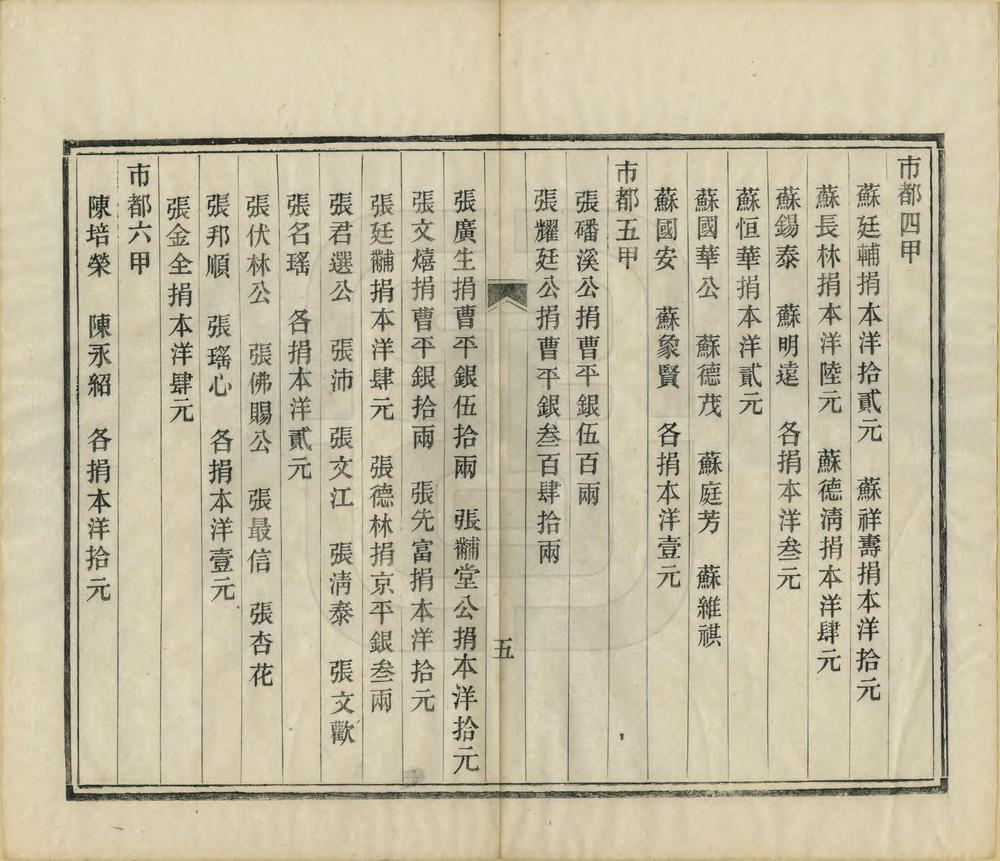 市都四甲
蘇廷輔捐本洋拾貳元　蘇祥壽捐本洋拾元
蘇長林捐本洋陸元　蘇德淸捐本洋肆元
蘇錫泰　蘇明遠　各捐本洋叁元
蘇恒華捐本洋貳元
蘇國華公　蘇德茂　蘇庭芳　蘇維祺
蘇國安　蘇象賢　各捐本洋壹元
市都五甲
張磻溪公捐曹平銀伍百兩
張耀廷公捐曹平銀叁百肆拾兩
五
張廣生捐曹平銀伍拾兩　張黼堂公捐本洋拾元
張文熺捐曹平銀拾兩　張先富捐本洋拾元
張廷黼捐本洋肆元　張德林捐京平銀叁兩
張君選公　張沛　張文江　張淸泰　張文歡
張名瑤　各捐本洋貳元
張伏林公　張佛賜公　張最信　張杏花
張邦順　張瑤心　各捐本洋壹元
張金全捐本洋肆元
市都六甲
陳培榮　陳永紹　各捐本洋拾元